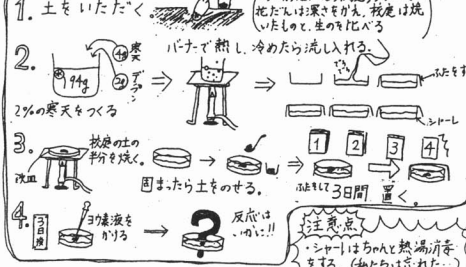 1. 土をいただく
花だんは深さをかえ、校庭は焼
いたものと、生のを比べる
2.
水 194g
4g 寒天
2g デンプン
バーナーで熱し、冷めたら流し入れる。
ふたをす
2%の寒天をつくる
シャーレ
3. 校庭の土の
半分を焼く。
固まったら土をのせる。
1 2 3 4
ふたをして 3日間 置く。
4. 3日後
ヨウ素液を
かける
?
反応は
いかに!!
注意点
・シャーレはちゃんと熱湯消毒
をする (私たちは忘れた…)